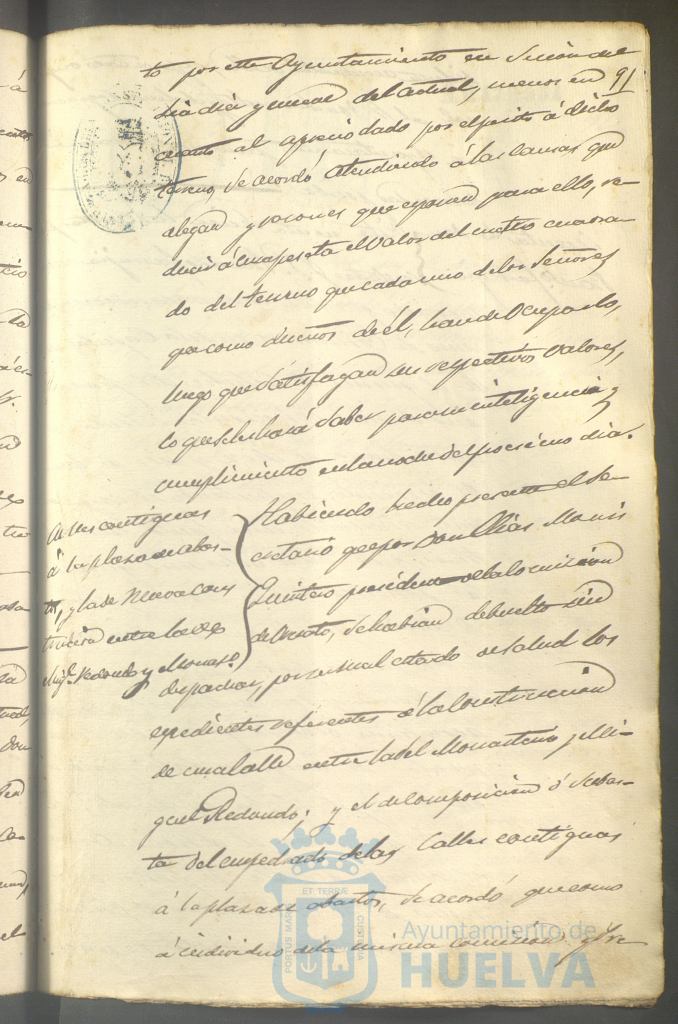 91
to por este Ayuntamiento en Sesion del
dia diez y nueve del actual, menos en
cuanto al aprecio dado por el perito á dicho
terreno, se acordó atendiendo á las causas que
alegan y razones que esponen para ello, re-
ducir á una peseta el valor del metro cuadra-
do del terreno que cada uno de los Señores
que como dueños de él, han de Ocuparlo,
luego que satisfagan sus respectivos valores,
lo que se les hará Saber para su inteligencia y
cumplimiento en la noche del procsimo dia.
Calles contiguas
á la plaza de abas-
tos, y la de Nueva Cons
truccion entre las de
Migl. Redondo y Monas.o
Habiendo hecho presente el Se-
cretario que por Don Elias Mª
Quintero presidente de la Comision
de Ornato, se habian debuelto sin
despachar, por su mal estado de salud los
espedientes referentes á la Construccion
de una Calle entre la del Monasterio y Mi-
guel Redondo; y el de composicion ó Subas-
ta del empedrado de las Calles contiguas
á la plaza de abastos, se acordó que como
á individuo de la misma comision y Pre-
PORTUS MARIS
ET TERRÆ
CUSTODIA
Ayuntamiento de
HUELVA